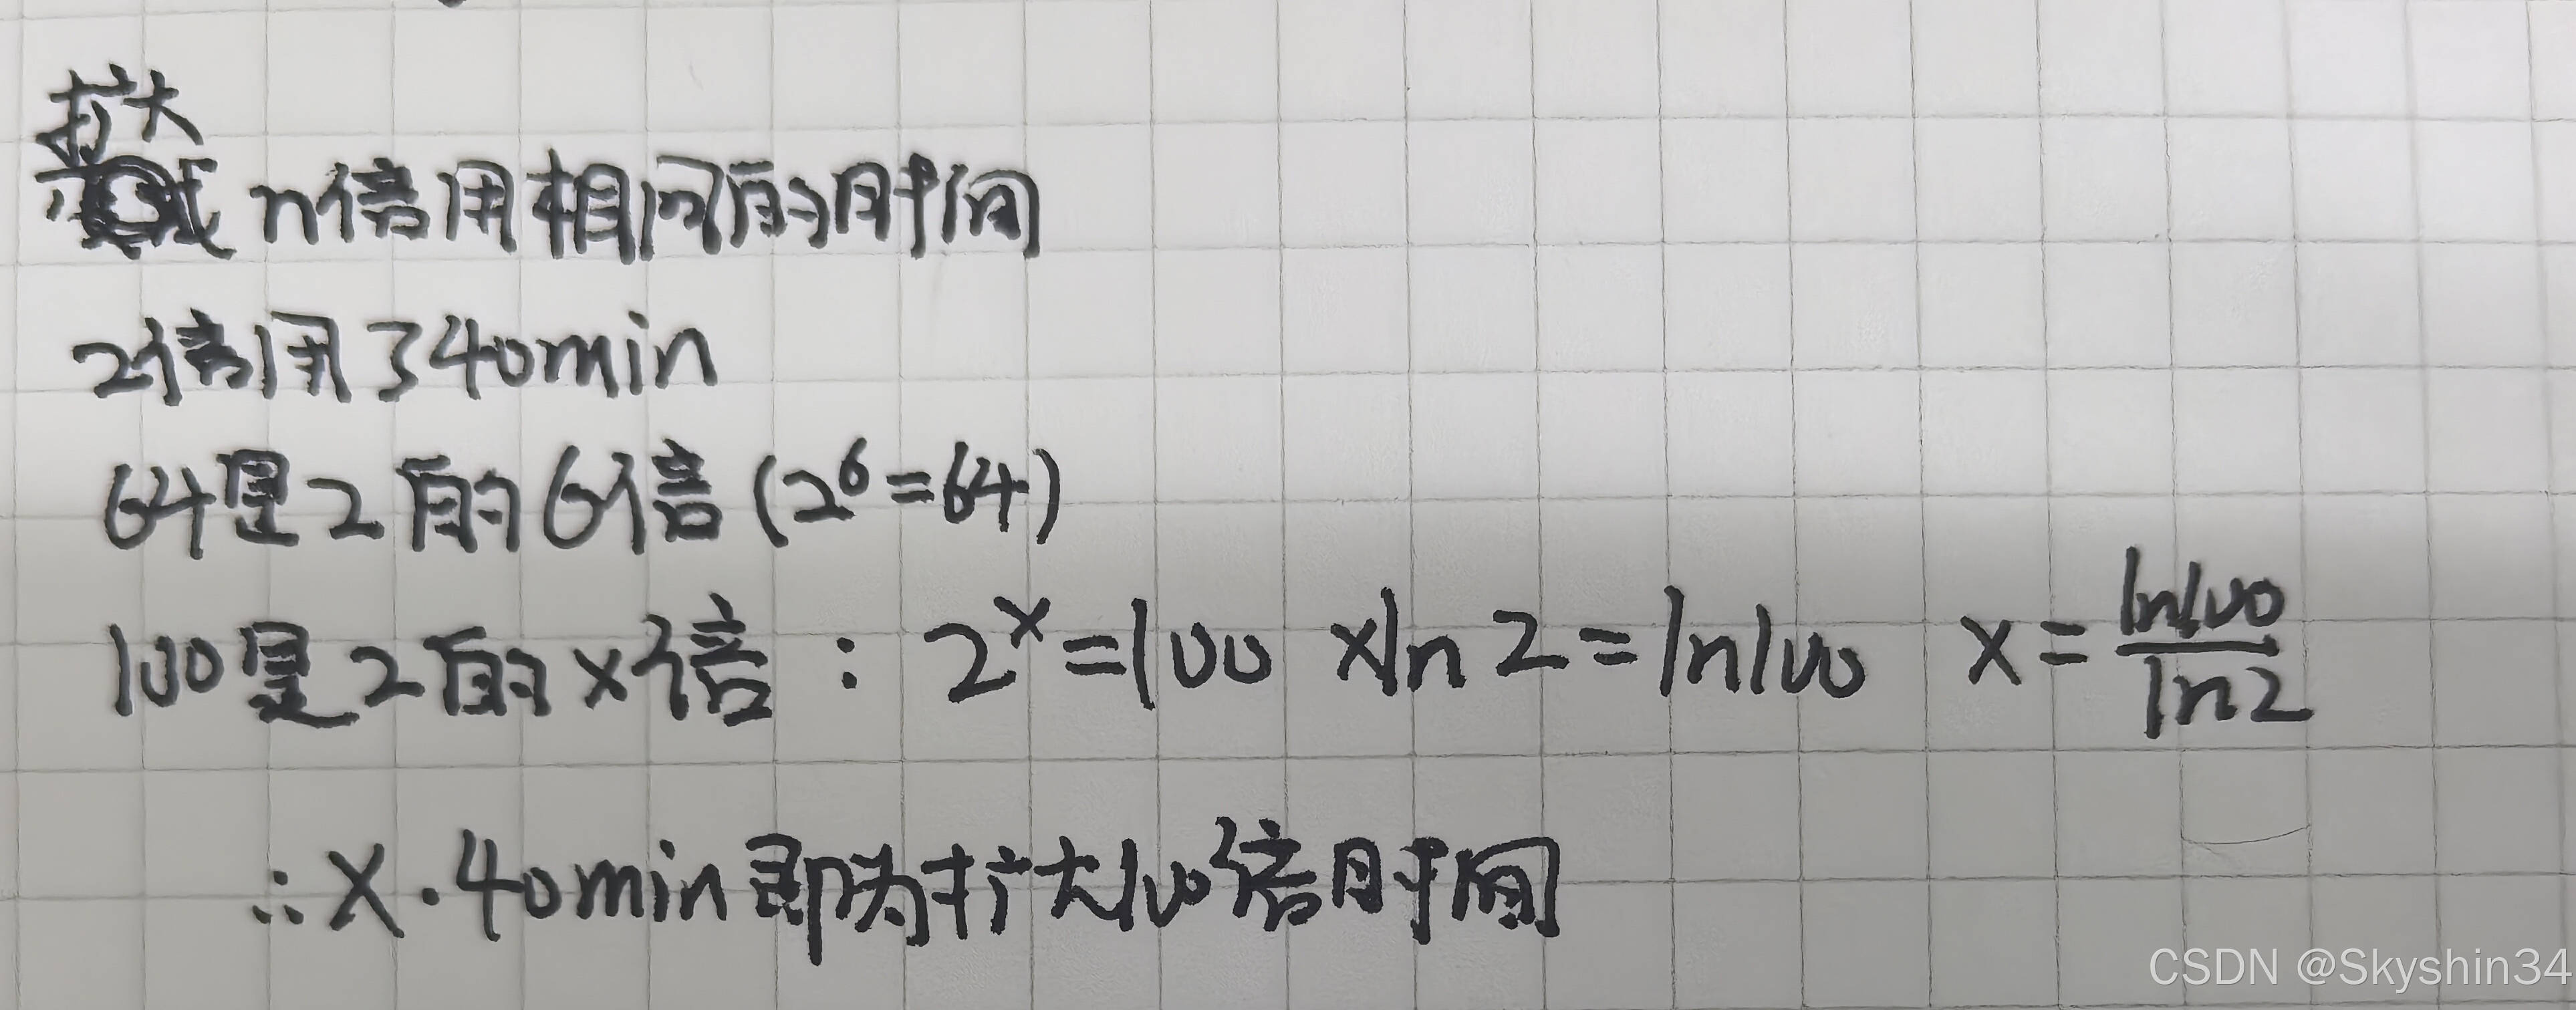 扩大
n倍用相同的时间
2倍用了40min
64是2的6倍(2⁶=64)
100是2的x倍：2ˣ=100 xln2=ln100 x=ln100/ln2
∴x·40min即为扩大100倍时间
CSDN @Skyshin34